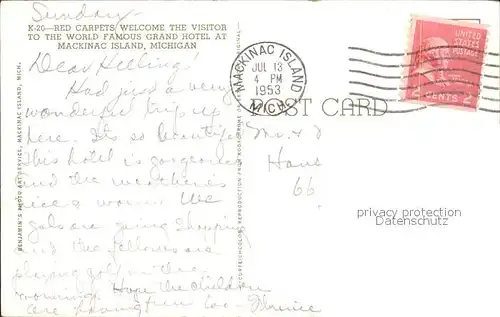 Sunday -
K-20—RED CARPETS WELCOME THE VISITOR
TO THE WORLD FAMOUS GRAND HOTEL AT
MACKINAC ISLAND, MICHIGAN
Dear Helling!
Had just a very
wonderful trip up
here. Its so beautiful
this hotel is gorgeous
and the weather is
nice & warm. We
gals are going shopping
and the fellows are
playing golf in the
morning. Hope the children
are having fun too - Florence
BENJAMIN'S PHOTO ART SERVICE, MACKINAC ISLAND, MICH.
MACKINAC ISLAND
JUL 13
4 PM
1953
MICH.
POST CARD
UNITED STATES POSTAGE
2 CENTS 2
Mr. &
Hans
66
privacy protection
Datenschutz